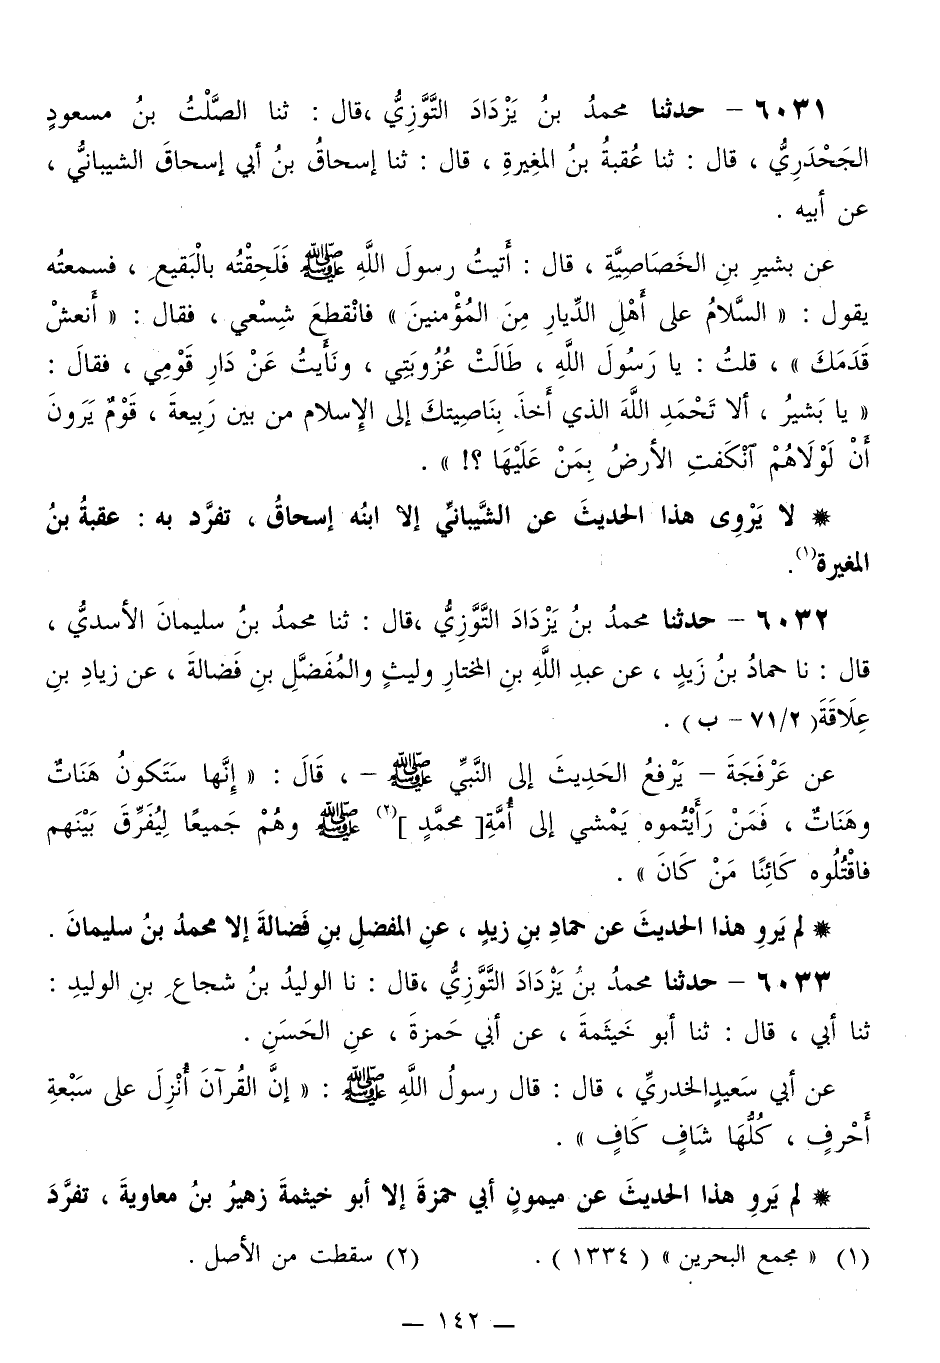 ٦٠٣١ – حدثنا محمدُ بنُ يَزْدَادَ التَّوَّزِيُّ ،قال : ثنا الصَّلْتُ بنُ مسعودٍ
الجَحْدَرِيُّ ، قال : ثنا عُقبةُ بنُ المغِيرةِ ، قال : ثنا إسحاقُ بنُ أبي إسحاقَ الشيبانيُّ ،
عن أبيه .
عن بشيرِ بنِ الخَصَاصِيَّةِ ، قال : أَتيتُ رسولَ اللَّهِ ﷺ فَلَحِقْتُه بالْبَقيعِ ، فسمعتُه
يقول : « السَّلامُ على أَهْلِ الدِّيارِ مِنَ المُؤْمنينَ » فانْقطعَ شِسْعي ، فقال : « أَنعشْ
قَدَمَكَ » ، قلتُ : يا رَسُولَ اللَّهِ ، طَالَتْ عُزُوبَتِي ، ونَأَيتُ عَنْ دَارِ قَوْمِي ، فقالَ :
« يا بَشيرُ ، ألا تَحْمَدِ اللَّهَ الذي أَخذَ بِنَاصِيتكَ إلى الإِسلام من بين رَبِيعةَ ، قَوْمٌ يَرَونَ
أَنْ لَوْلَاهُمْ ٱنْكَفتِ الأرضُ بِمَنْ عَلَيْهَا ؟! » .
* لا يَرْوِى هذا الحديثَ عن الشَّيبانيِّ إلا ابنُه إسحاقُ ، تفرَّد به : عقبةُ بنُ
المغيرة(١).
٦٠٣٢ – حدثنا محمدُ بنُ يَزْدَادَ التَّوَّزِيُّ ،قال : ثنا محمدُ بنُ سليمانَ الأسديُّ ،
قال : نا حمادُ بنُ زَيدٍ ، عن عبدِ اللَّهِ بنِ المختارِ وليثٍ والمُفَضَّلِ بنِ فَضالةَ ، عن زيادِ بنِ
عِلَاقَةَ( ٧١/٢ – ب ) .
عن عَرْفَجَةَ – يَرْفعُ الحَدِيثَ إلى النَّبيِّ ﷺ – ، قَالَ : « إنَّها سَتَكونُ هَنَاتٌ
وهَنَاتٌ ، فَمَنْ رَأَيْتُموه يَمْشي إلى أُمَّةِ[ محمَّدٍ ](٢) ﷺ وهُمْ جَميعًا لِيُفَرِّقَ بَيْنَهم
فاقْتُلُوه كَائِنًا مَنْ كَانَ » .
* لم يَروِ هذا الحديثَ عن حمادِ بنِ زيدٍ ، عنِ المفضلِ بنِ فَضالةَ إلا محمدُ بنُ سليمانَ .
٦٠٣٣ – حدثنا محمدُ بنُ يَزْدَادَ التَّوَّزِيُّ ،قال : نا الوليدُ بنُ شجاعِ بنِ الوليدِ :
ثنا أبي ، قال : ثنا أبو خَيثَمةَ ، عن أبي حَمزةَ ، عنِ الحَسَنِ .
عن أبي سَعيدٍالخدريِّ ، قال : قال رسولُ اللَّهِ ﷺ : « إنَّ القُرآنَ أُنْزِلَ على سَبْعةِ
أَحْرفٍ ، كُلُّهَا شَافٍ كَافٍ » .
* لم يَروِ هذا الحديثَ عن ميمونٍ أبي حمزةَ إلا أبو خيثمةَ زهيرُ بنُ معاويةَ ، تفرَّدَ
(١) « مجمع البحرين » ( ١٣٣٤ ) . (٢) سقطت من الأصل .
– ١٤٢ –